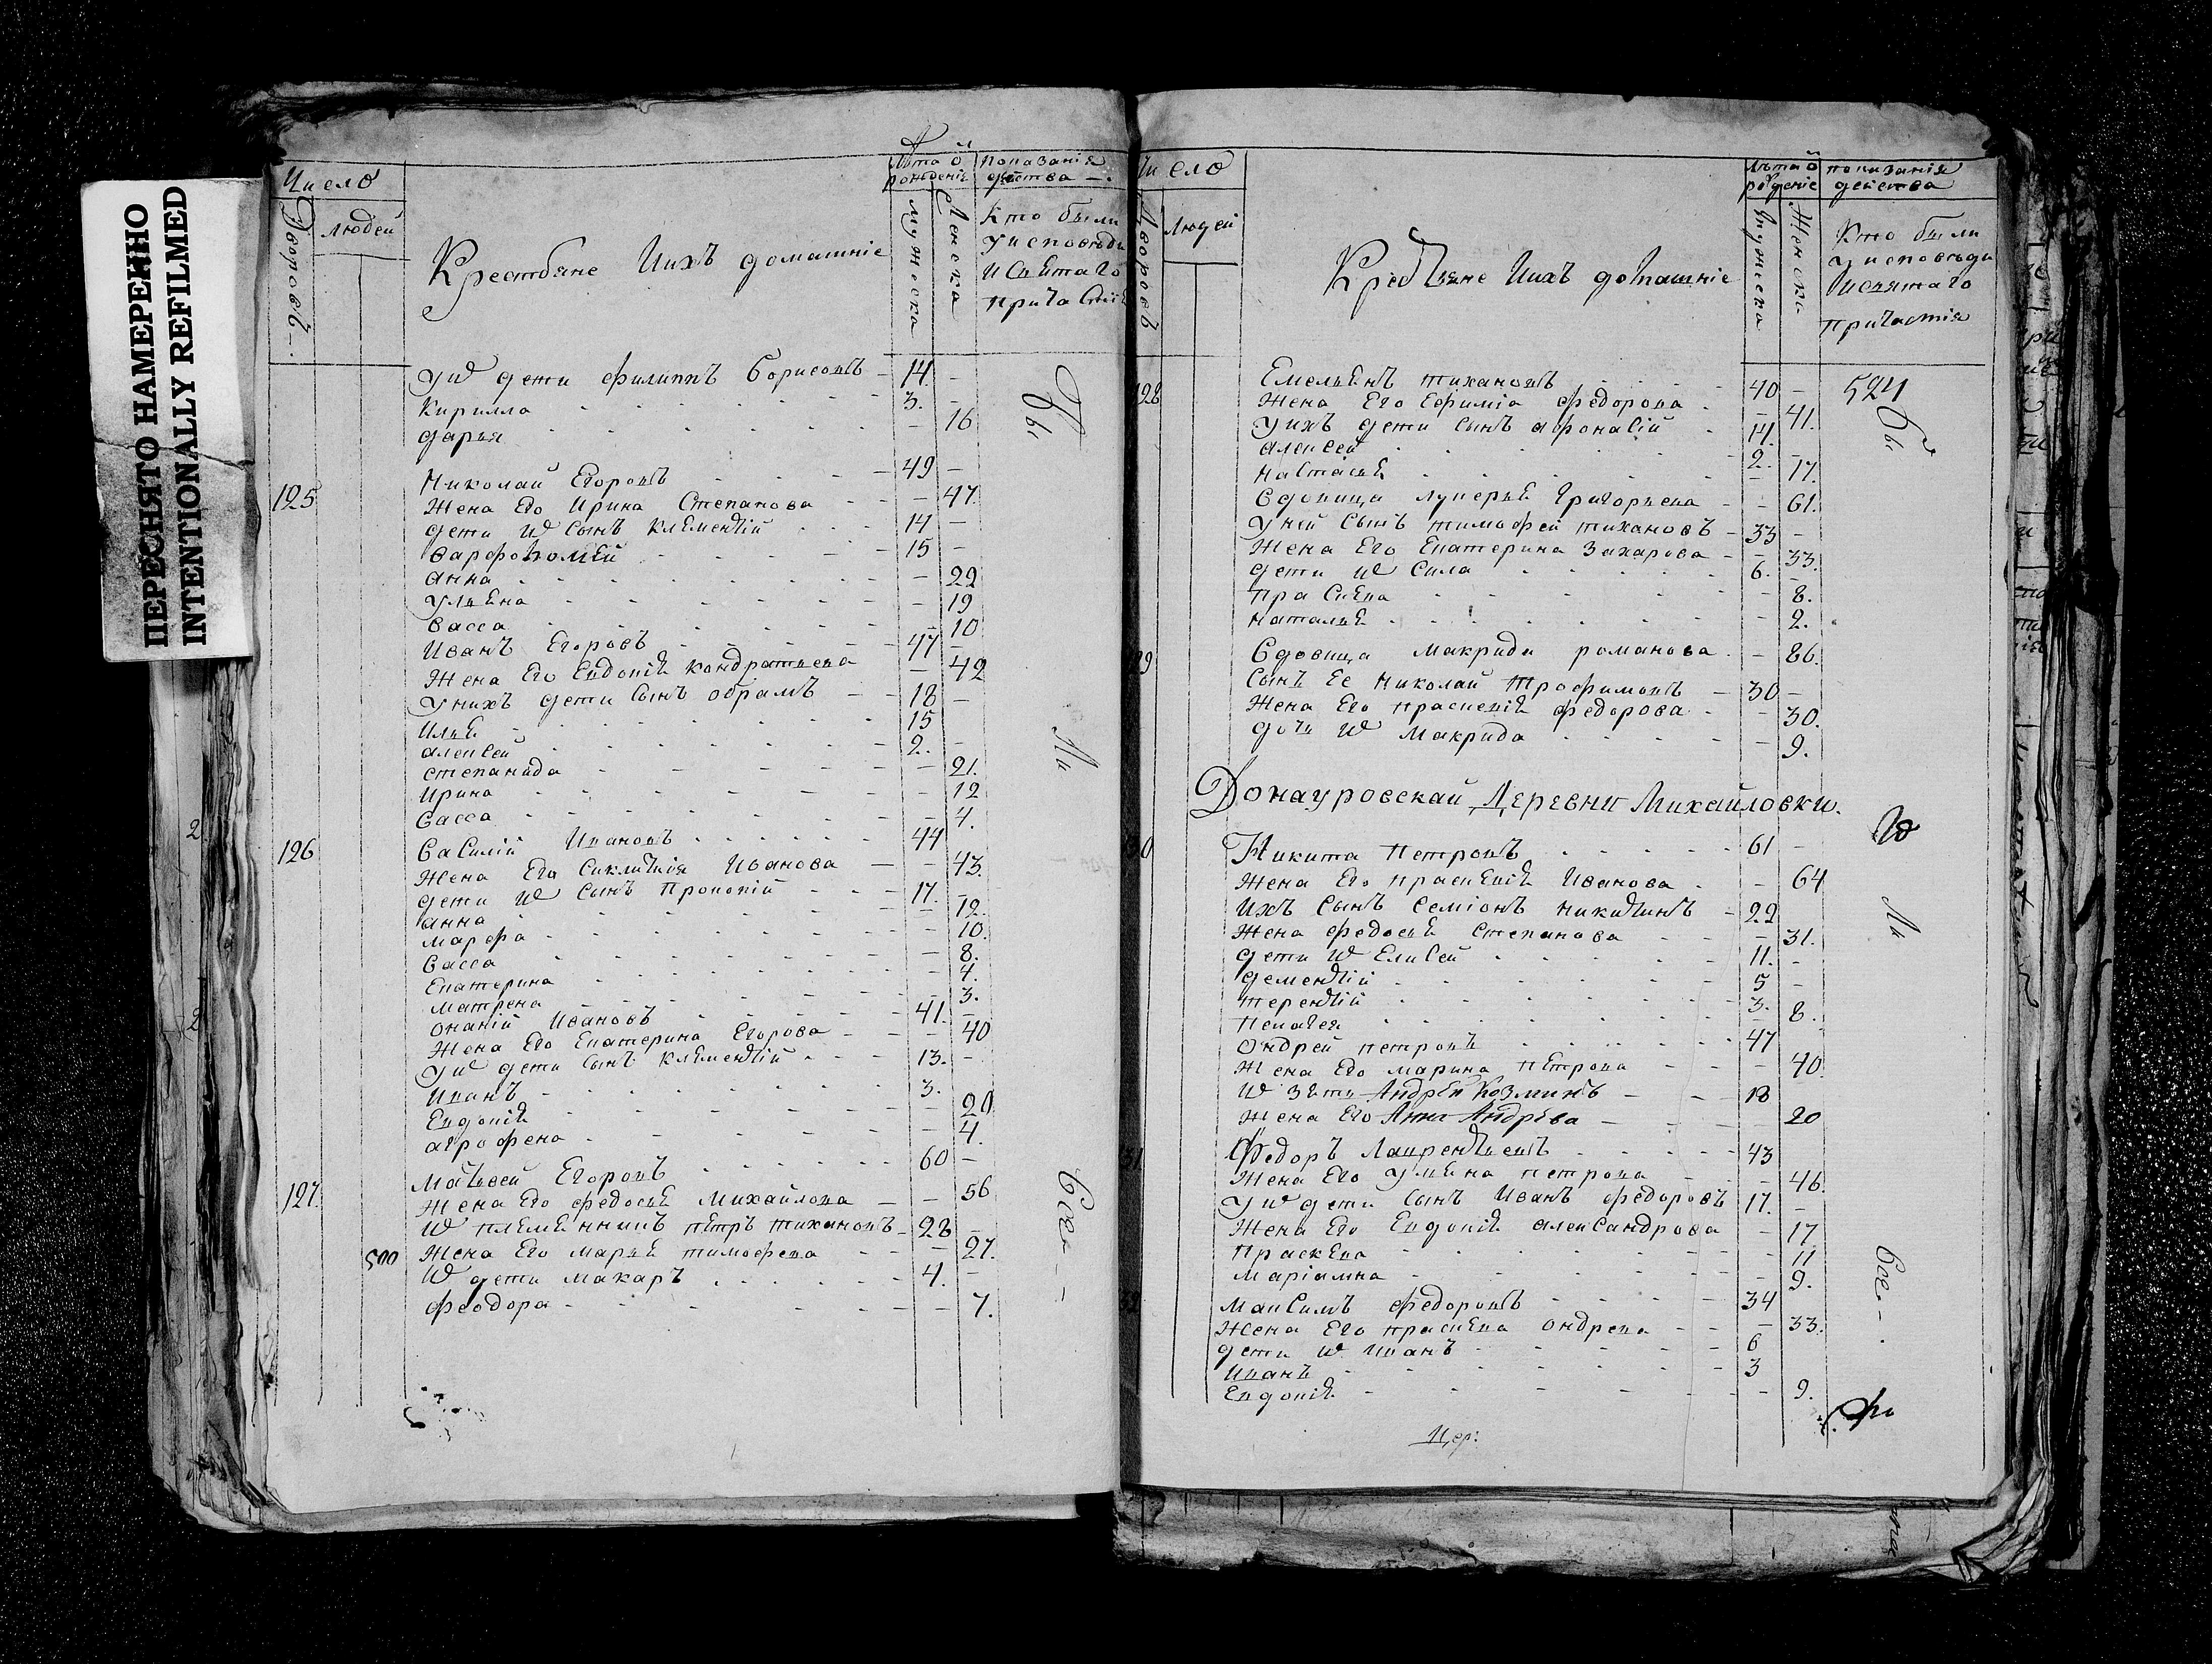 ПЕРЕСНЯТО НАМЕРЕННО
INTENTIONALLY REFILMED
Число
Дворовъ
людей
Крестьяне Иихъ домашніе
Лѣта ѿ рожденіѧ
мужеска
Женска
показаніѧ действа
Кто были
у исповѣди
и свѧтаго
причастіѧ
у ни дети филиппъ борисовъ 14
Кирилла 3.
дарья 16
125 Николай Егоровъ 49
Жена Его Ирина Степанова 47.
дети ни сынъ клементій 14
варфоломей 15
анна 22
Ульѧна 19
васса 10
Иванъ Егоровъ 47
Жена Его Евдокіѧ кондратьева 42
Унихъ дети сынъ обрамъ 18
Ильѧ 15
алексей 2.
степанида 21.
ирина 12
васса 4.
126 василій Ивановъ 44
Жена Его Сиклитикія Иванова 43.
дети ни сынъ прокопій 17.
анна 12.
марфа 10.
васса 8.
Екатерина 4.
матрена 3.
онаній Ивановъ 41.
Жена Его Екатерина Егорова 40
у ни дети сынъ клементій 13.
Иванъ 3.
Евдокіѧ 20
агрофена 4.
127. матвей Егоровъ 60
Жена Его федосьѧ Михайлова 56
ни племѧнникъ петръ тихановъ 28
500 Жена Его марьѧ тимофева 27.
ни дети макаръ 4.
феодора 7.
Бы
ли
все
Число
Дворовъ
Людей
Крестьяне Иихъ домашніе
Лѣта ѿ рожденіе
мужеска
Женска
показаніѧ действа
Кто были
у исповѣди
и свѧтаго
причастія
524
128 Емельѧнъ тихановъ 40
Жена Его Ефиміа федорова 41.
Унихъ дети сынъ афонасій 14.
алексей 2.
настасьѧ 17.
вдовица лукерьѧ григорьева 61.
у ней сынъ тимофей тихановъ 33
Жена Его Екатерина Захарова 33.
дети ни сила 6.
праскева 8.
натальѧ 2.
29 вдовица макрида романова 86.
сынъ Ее николай трофимовъ 30
Жена Его праскевіѧ федорова 30.
дочь ни макрида 9.
Донауровскай Деревни Михайловки.
Никита петровъ 61
Жена Его праскевіѧ Иванова 64
ихъ сынъ семіонъ никитинъ 22
Жена федосьѧ степанова 31.
дети ни Елисей 11.
дементій 5
терентій 3.
пелагея 8.
ондрей петровъ 47
Жена Его марина петрова 40.
ни зѧть Андрей Козминъ 18
Жена Его Анна Андрева 20
Федоръ Лаврентьевъ 43
Жена Его Ульѧна петрова 46.
у ни дети сынъ Иванъ федоровъ 17.
Жена Его Евдокіѧ александрова 17
праскева 11
маріамна 9.
максимъ федоровъ 34
Жена Его праскева ондрева 33.
дети ни Иванъ 6
Иванъ 3
Евдокіѧ 9.
Бы
ли
все
Цер: